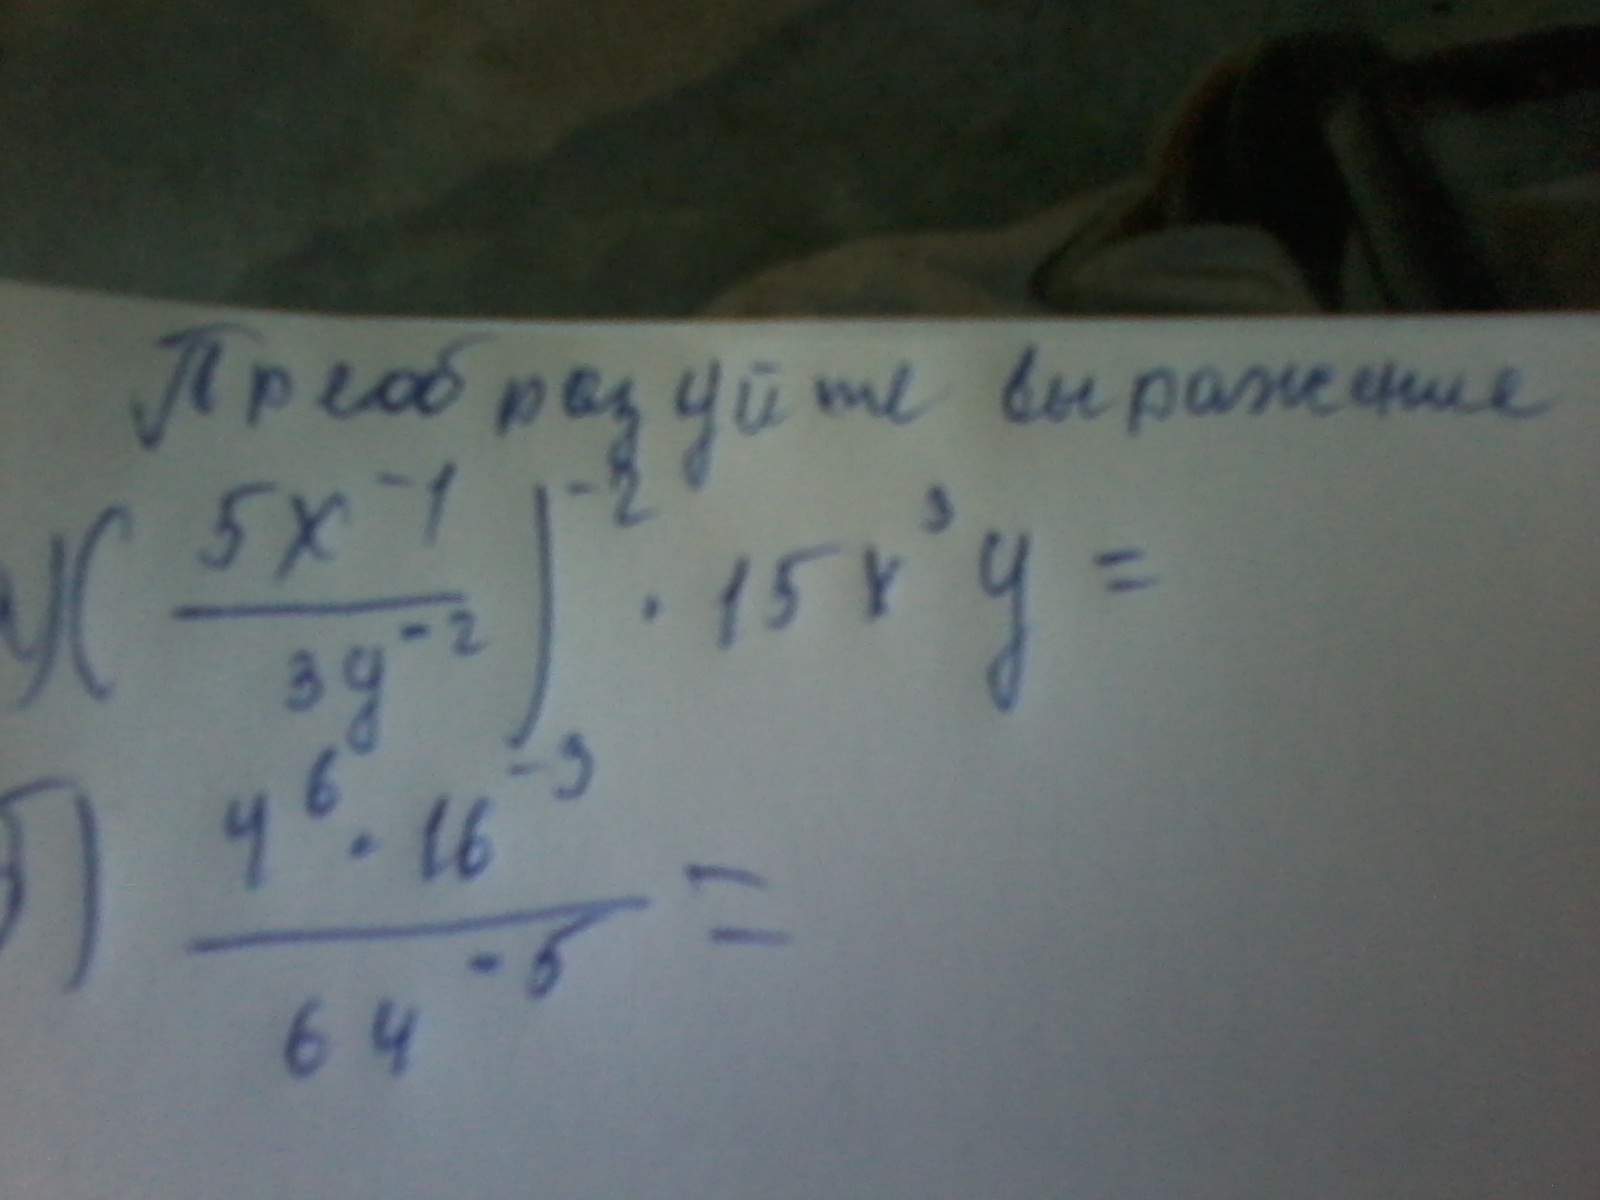 Преобразуйте выражение
а) (5x⁻¹ / 3y⁻²)⁻² · 15x³y =
б) 4⁶ · 16⁻⁹ / 64⁻⁵ =